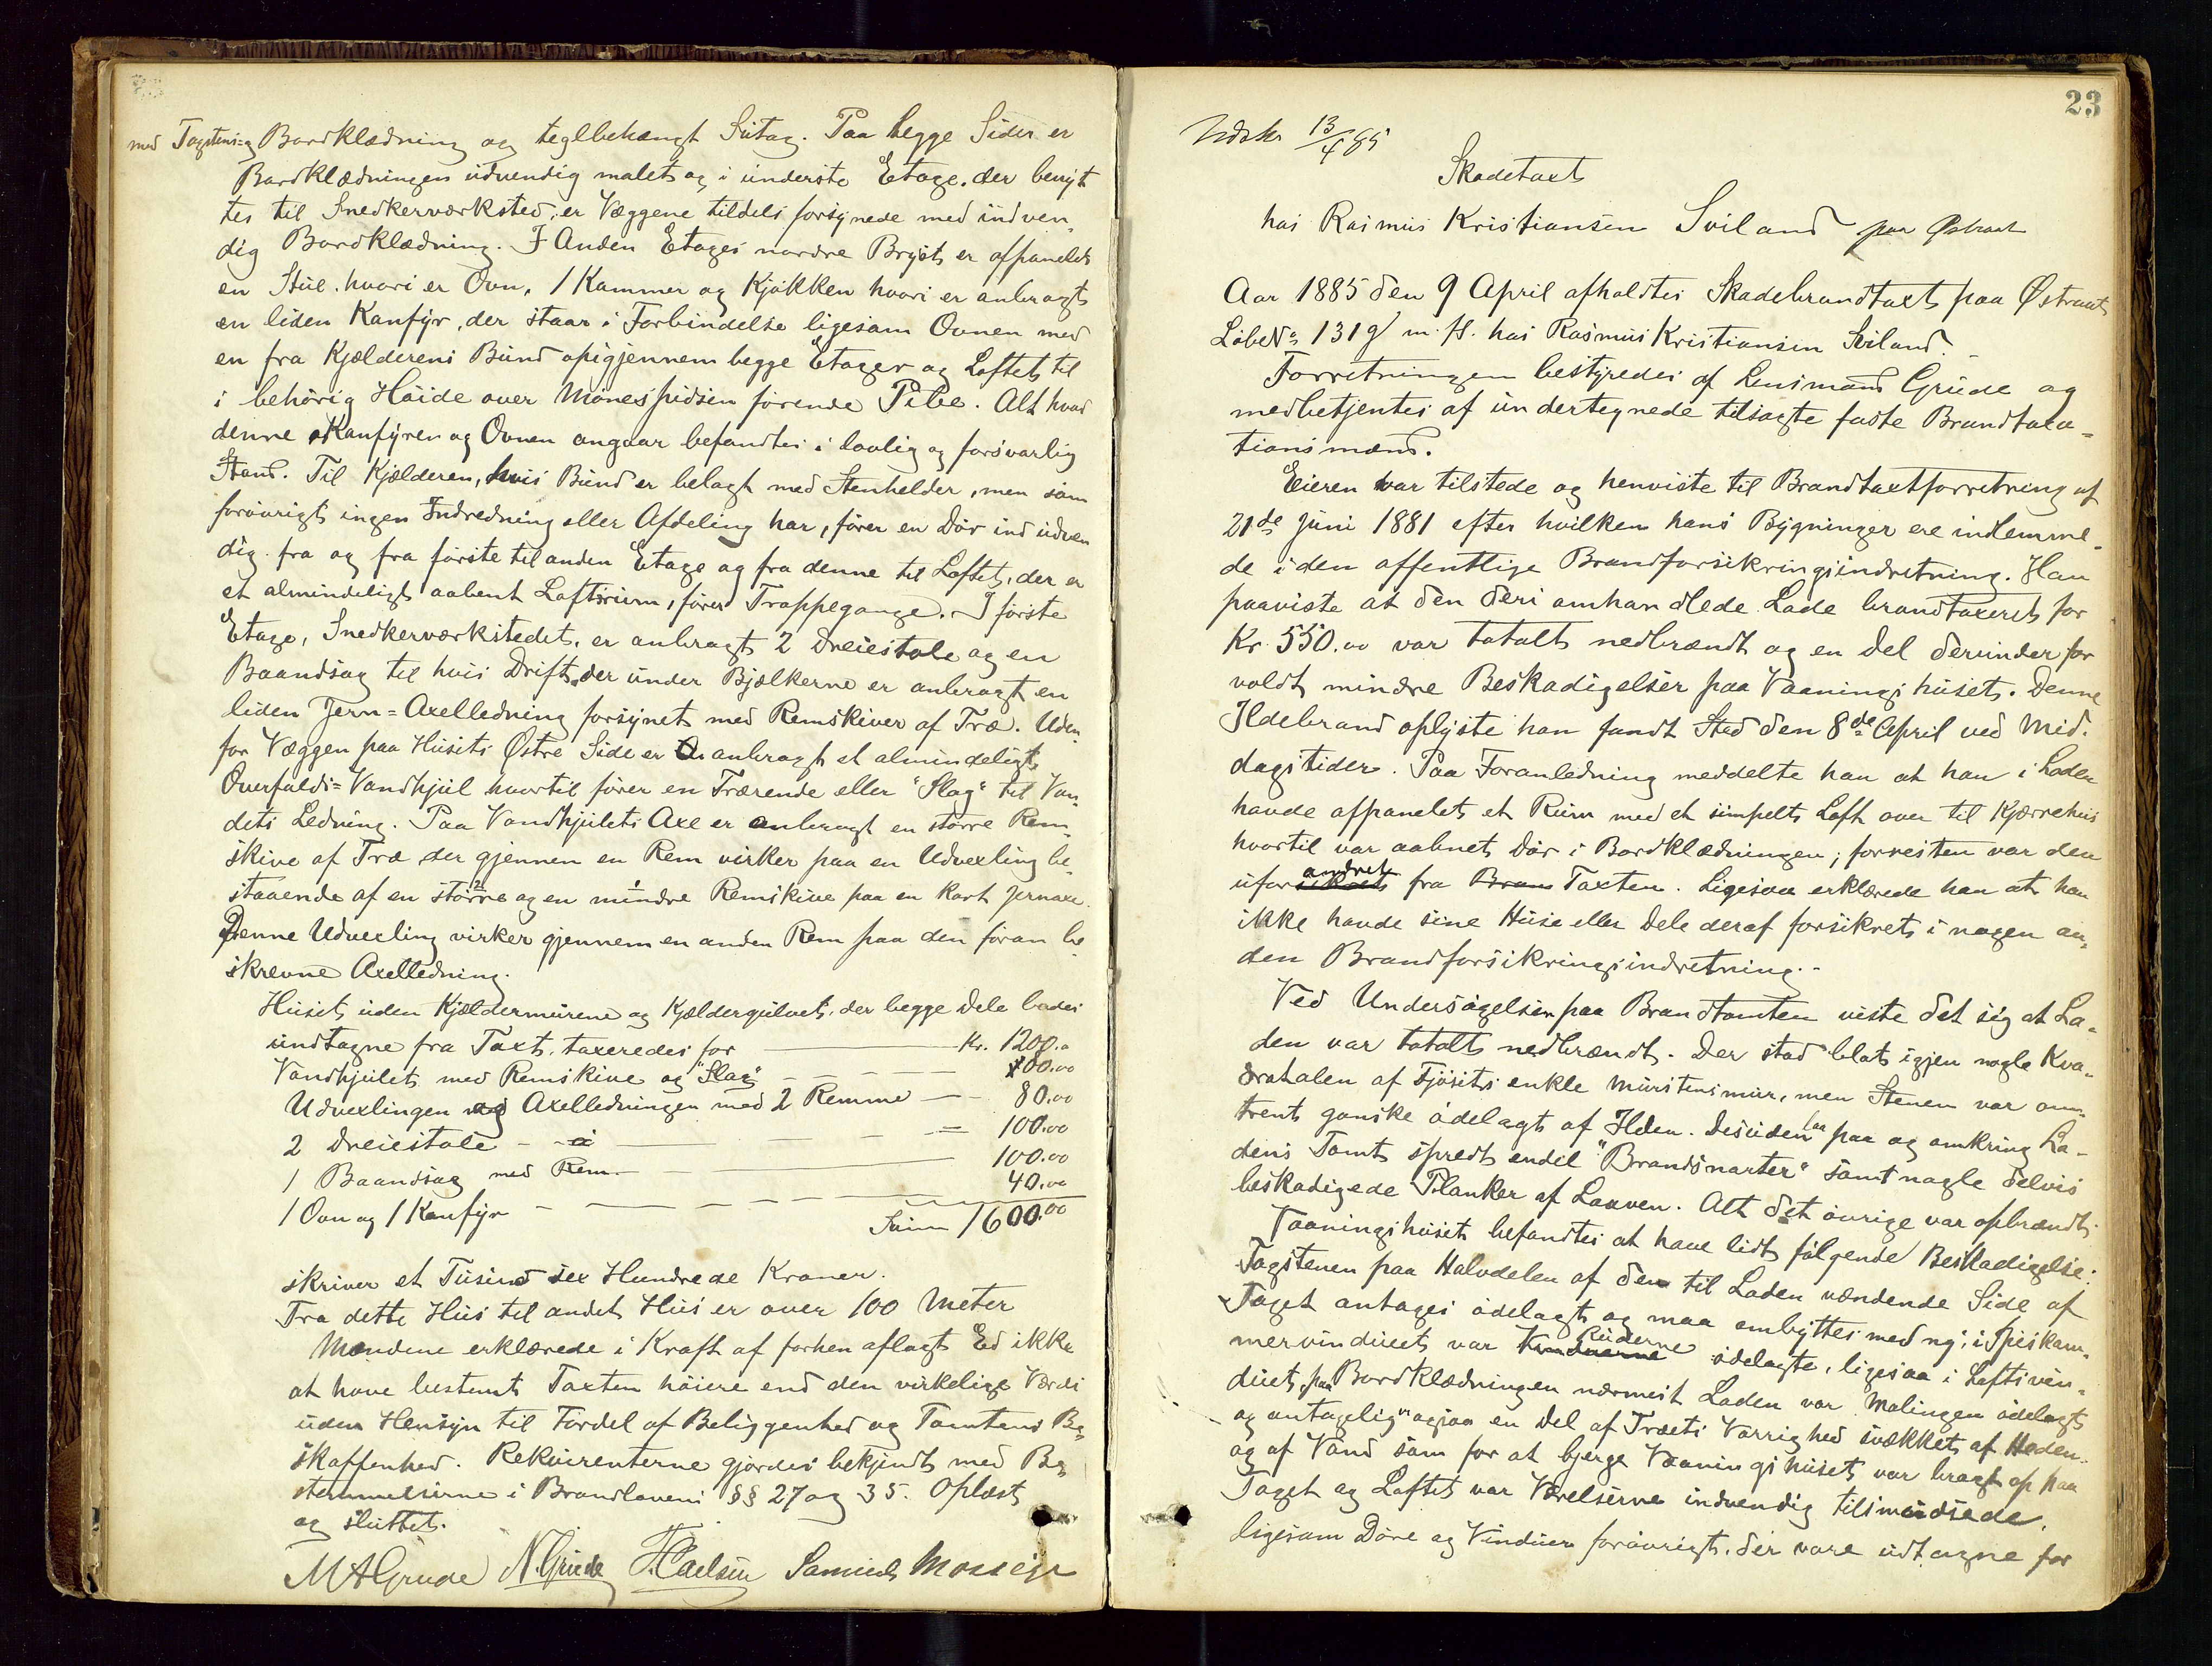 med Tagstens og Bordklædning og teglbehængt Sutag. Paa begge Sider er
Bordklædningen udvendig malet og i underste Etage, der benyt
tes til Snedkerværksted, er Væggene tildels forsynede med indven,
dig Bordklædning. I Anden Etages nordre Bryst er afpanelet
en Stue, hvori er Ovn, 1 Kammer og Kjøkken hvori er anbragt
en liden Komfyr, der staar i Forbindelse ligesom Ovnen med
en fra Kjælderens Bund opigjennem begge Etager og Loftet til
i behörig Höide over Mönespidsen förende Pibe. Alt hvad
denne Komfyren og Ovnen angaar befandtes i lovlig og forsvarlig
Stand. Til Kjælderen, hvis Bund er belagt med Stenhelder, men som
forövrigt ingen Indredning eller Afdeling har, förer en Dör ind udven
dig fra og fra förste til anden Etage og fra denne til Loftet, der er
et almindeligt aabent Loftsrum, förer Trappegange. I förste
Etage, Snedkerværkstedet, er anbragt 2 Dreiestole og en
Baandsag til hvis Drift der under Bjælkerne er anbragt en
liden Jern=Axelledning forsynet med Remskiver af Træ. Uden,
for Væggen paa Husets Østre Side er anbragt et almindeligt
Overfalds=Vandhjul hvortil förer en Trærende eller "Slag" til Van,
dets Ledning. Paa Vandhjulets Axe er anbragt en större Rem,
skive af Træ der gjennem en Rem virker paa en Udvexling be,
staaende af en större og en mindre Remskive paa en kort Jernaxe.
Denne Udvexling virker gjennem en anden Rem paa den foran be,
skrevne Axelledning.
Huset uden Kjældermurene og Kjældergulvet, der begge Dele lades
undtagne fra Taxt, taxeredes for — Kr. 1200.
Vandhjulet med Remskive og "Slag" — 80.00
Udvexlingen og Axelledningen med 2 Remme — 80.00
2 Dreiestole — 100.00
1 Baandsag med Rem — 100.00
1 Ovn og 1 Komfyr — 40.00
Sum 1600.00
skriver et Tusind sex Hundrede Kroner.
Fra dette Hus til andet Hus er over 100 Meter
Mændene erklærede i Kraft af forhen aflagt Ed ikke
at have bestemt Taxten höiere end den virkelige Værdi
uden Hensyn til Fordel af Beliggenhed og Tomtens Be,
skaffenhed. Rekvirenterne gjordes bekjendt med Be,
stemmelserne i Brandlovens §§ 27 og 35. Oplæst
og sluttet.
M A Grude N. Grude Samuel Mossige
23
Udskr 13/4 85
Skadetaxt
hos Rasmus Kristiansen Sviland paa Østraat
Aar 1885 den 9 April afholdtes Skadebrandtaxt paa Østraat
LöbeNo 131 g m. fl. hos Rasmus Kristiansen Sviland.
Forretningen bestyredes af Lensmand Grude og
medbetjentes af undertegnede tilsagte faste Brandtaxa=
tionsmænd.
Eieren var tilstede og henviste til Brandtaxtforretning af
21de Juni 1881 efter hvilken hans Bygninger ere indlemme-
de i den offentlige Brandforsikringsindretning. Han
paaviste at den deri omhandlede Lade brandtaxeret for
Kr. 550.00 var totalt nedbrændt og en Del derunder for
voldt mindre Beskadigelser paa Vaaningshuset. Denne
Ildebrand oplyste han fandt Sted den 8de April ved Mid.
dagstider. Paa Foranledning meddelte han at han i Laden
havde afpanelet et Rum med et simpelt Loft over til Kjærrehus
hvortil var aabnet Dör i Bordklædningen; forresten var den
uforandret fra Taxten. Ligesaa erklærede han at han
ikke havde sine Huse eller Dele deraf forsikret i nogen an,
den Brandforsikringsindretning.-
Ved Undersögelsen paa Brandtomten viste det sig at La-
den var totalt nedbrændt. Der stod blot igjen nogle Kva-
dratalen af Fjösets enkle Murstensmur, men Stenen var om-
trent ganske ödelagt af Ilden. Desuden laa paa og omkring La-
dens Tomt spredt endel "Brandsnarter" samt nogle delvis
beskadigede Planker af Laaven. Alt det övrige var opbrændt.
Vaaningshuset befandtes at have lidt fölgende Beskadigelse:
Tagstenen paa Halvdelen af den til Laden vendende Side af
Taget antages ödelagt og maa ombyttes med ny; i Spiskam,
mervinduet var Ruderne ödelagte, ligesaa i Loftsvin-
duet, paa Bordklædningen nærmest Laden var Malingen ödelagt
og antagelig ogsaa en Del af Træets Varighed svækket af Heden.
og af Vand som for at bjerge Vaaningshuset var bragt op paa
Taget og Loftet var Værelserne indvendig tilsmudsede,
ligesom Döre og Vinduer forövrigt, der vare udtagne for